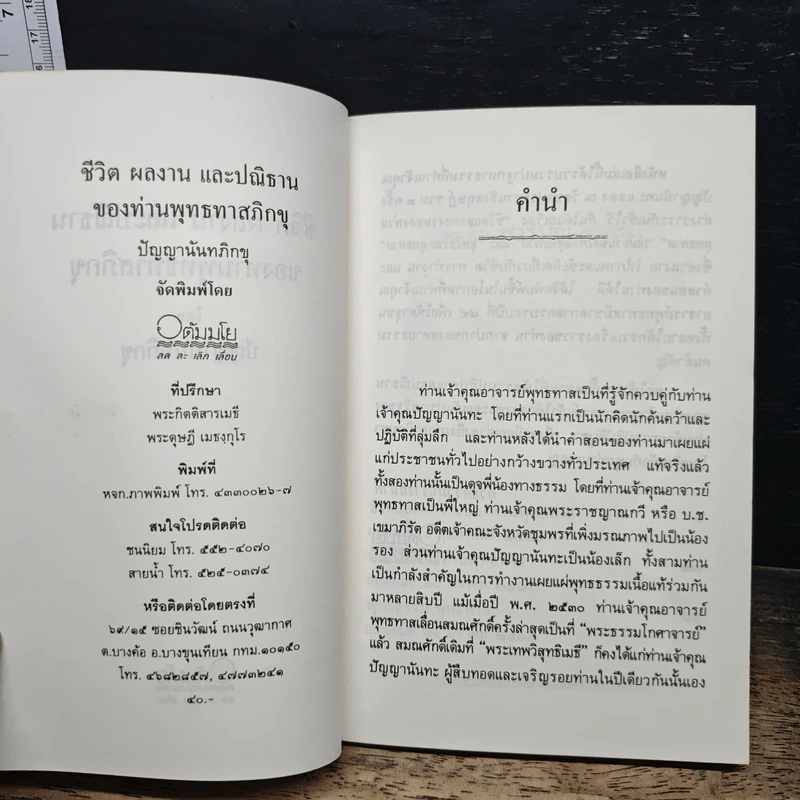 ชีวิต ผลงาน และปณิธาน
ของท่านพุทธทาสภิกขุ
ปัญญานันทภิกขุ
จัดพิมพ์โดย
อตัมมโย
ลด ละ เลิก เลื่อน
ที่ปรึกษา
พระกิตติสารเมธี
พระดุษฎี เมธงฺกุโร
พิมพ์ที่
หจก.ภาพพิมพ์ โทร. ๔๓๓๐๐๒๖-๗
สนใจโปรดติดต่อ
ชนนิยม โทร. ๕๕๒-๔๐๗๐
สายน้ำ โทร. ๕๒๕-๐๓๗๔
หรือติดต่อโดยตรงที่
๖๙/๑๕ ซอยชินวัฒน์ ถนนวุฒากาศ
ต.บางค้อ อ.บางขุนเทียน กทม.๑๐๑๕๐
โทร. ๔๖๘๒๘๕๗, ๔๗๗๓๒๔๑
๔๐.-
คำนำ
ท่านเจ้าคุณอาจารย์พุทธทาสเป็นที่รู้จักควบคู่กับท่าน
เจ้าคุณปัญญานันทะ โดยที่ท่านแรกเป็นนักคิดนักค้นคว้าและ
ปฏิบัติที่ลุ่มลึก และท่านหลังได้นำคำสอนของท่านมาเผยแผ่
แก่ประชาชนทั่วไปอย่างกว้างขวางทั่วประเทศ แท้จริงแล้ว
ทั้งสองท่านนั้นเป็นดุจพี่น้องทางธรรม โดยที่ท่านเจ้าคุณอาจารย์
พุทธทาสเป็นพี่ใหญ่ ท่านเจ้าคุณพระราชญาณกวี หรือ บ.ช.
เขมาภิรัต อดีตเจ้าคณะจังหวัดชุมพรที่เพิ่งมรณภาพไปเป็นน้อง
รอง ส่วนท่านเจ้าคุณปัญญานันทะเป็นน้องเล็ก ทั้งสามท่าน
เป็นกำลังสำคัญในการทำงานเผยแผ่พุทธธรรมเนื้อแท้ร่วมกัน
มาหลายสิบปี แม้เมื่อปี พ.ศ. ๒๕๓๐ ท่านเจ้าคุณอาจารย์
พุทธทาสเลื่อนสมณศักดิ์ครั้งล่าสุดเป็นที่ “พระธรรมโกศาจารย์”
แล้ว สมณศักดิ์เดิมที่ “พระเทพวิสุทธิเมธี” ก็คงได้แก่ท่านเจ้าคุณ
ปัญญานันทะ ผู้สืบทอดและเจริญรอยท่านในปีเดียวกันนั้นเอง
7
18
17
16